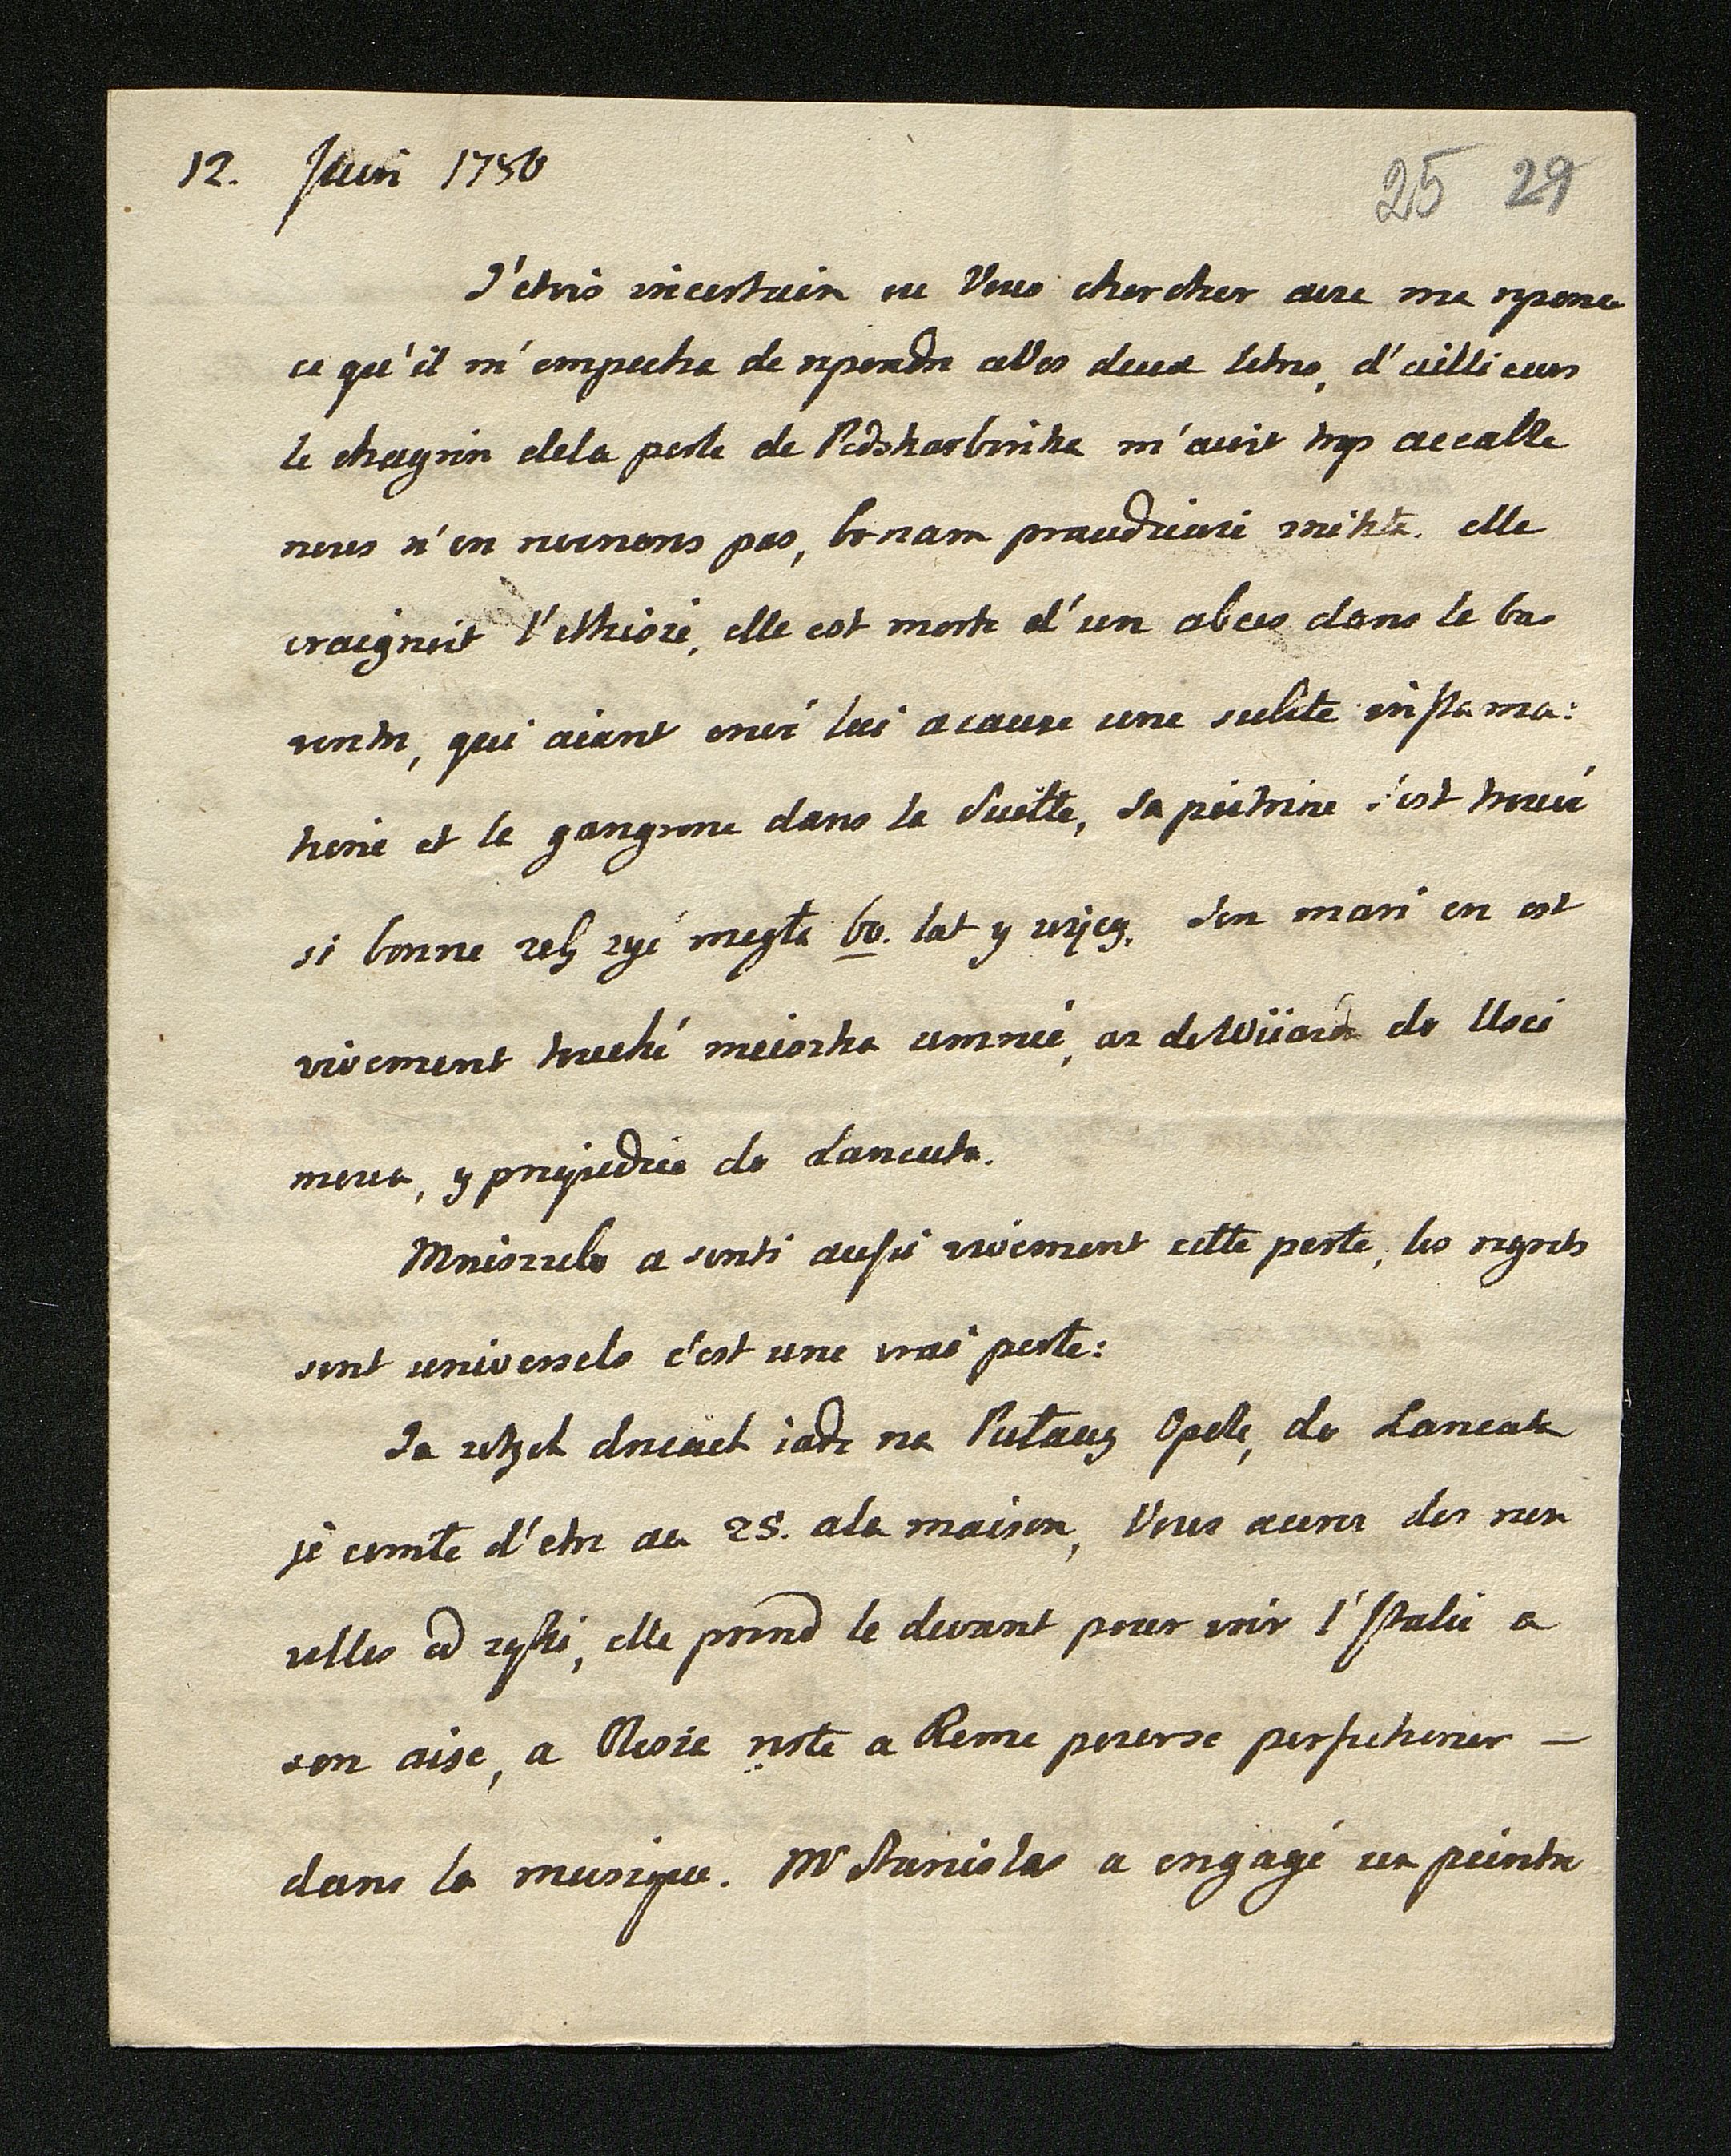 12. Juin 1786
25 29
J'etois incertain ou Vous chercher avec ma reponce
ce qu'il m'empecha de repondre a Vos deux letres, d'aillieurs
le chagrin dela perte de Podskarbinka m'avoit trop accalle
nous n'en revenons pas, bo nam prawdziwie miła. elle
craignoit l'ethisie, elle est morte d'un abces dans le bas
ventre, qui aiant crevé lui a cause une subite inflama:
tione et le gangrene dans la Suitte, Sa poitrine s'est trouvé
si bonne zeby zyć mogła 60. lat y wijcy. Son mari en est
vivement touché meiorka umrzec, do Usci
mowa, y do Lancuta.
Mniszcha a senti aussi vivement cette perte, les regrets
sont universels c'est une vrai perte:
Ja jade na Puławy Opole, do Lancuta
je comte d'etre au 25. ala maison, Vous aurez des nou
velles od elle prend le devant pour voir l'Italie a
son aise, a Olesie reste a Rome pour se perfectioner –
dans la musique. Mr Stanislas a engagé un peintre